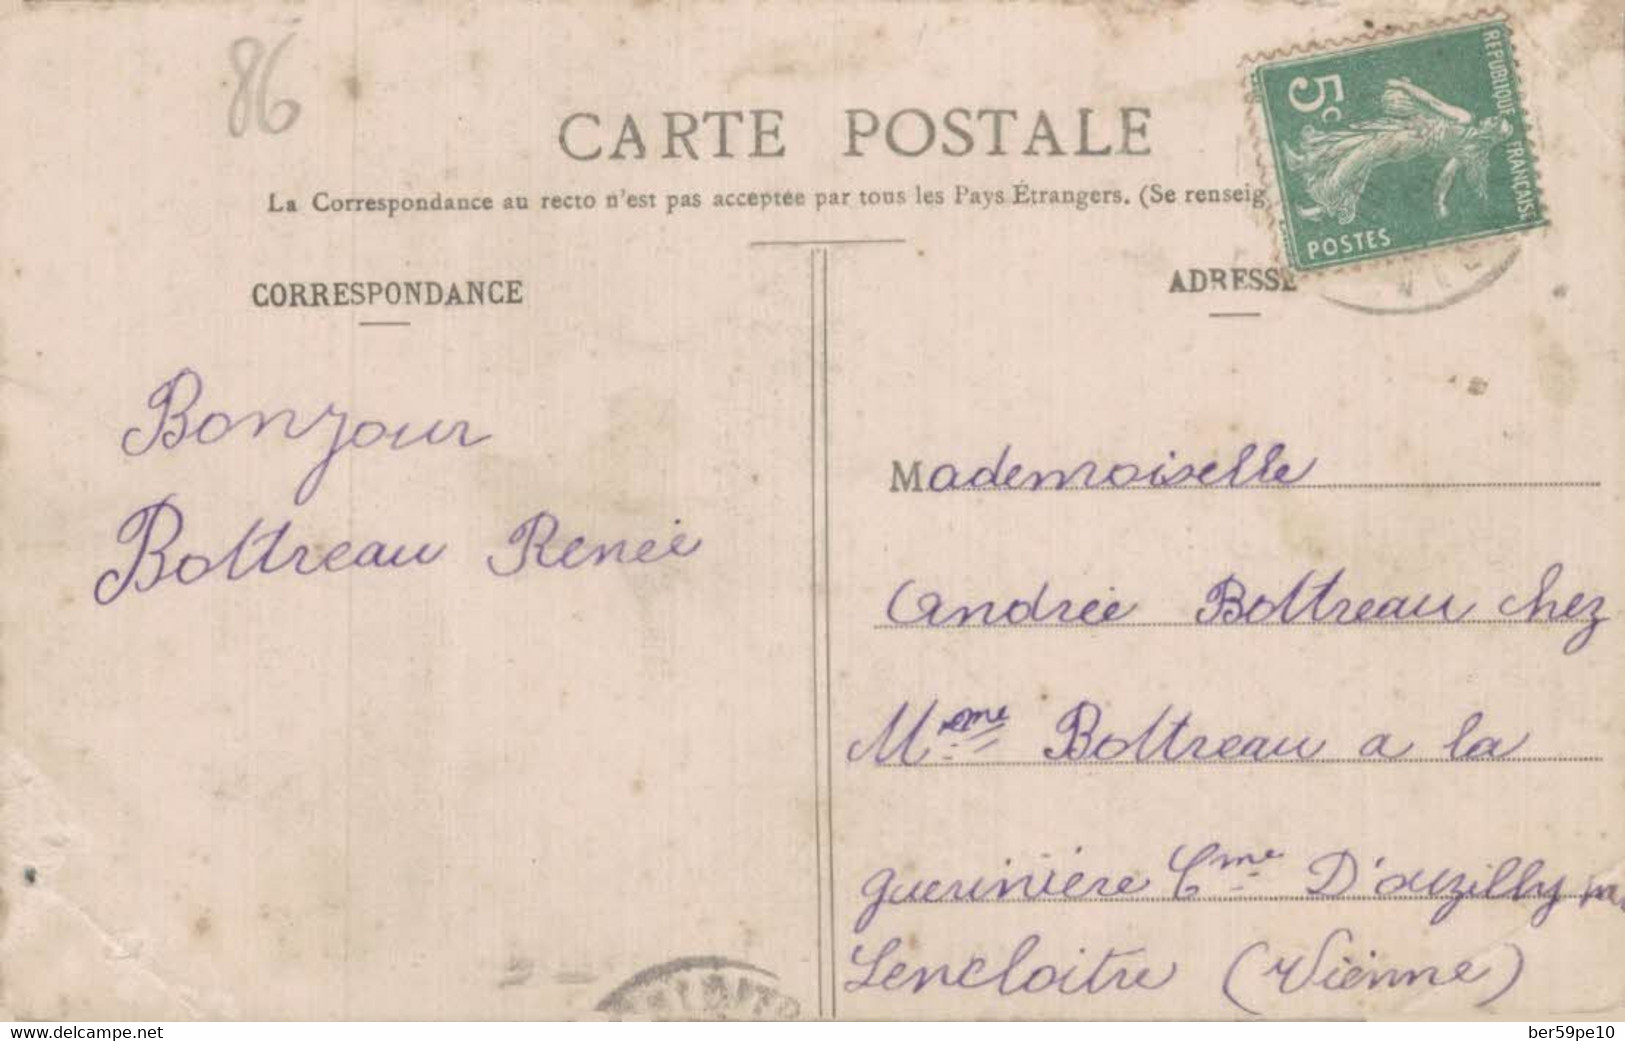 86
CARTE POSTALE
La Correspondance au recto n'est pas acceptée par tous les Pays Étrangers. (Se renseig
5c
REPUBLIQUE FRANÇAISE
POSTES
CORRESPONDANCE
ADRESSE
Bonjour
Bottreau Renée
Mademoiselle
Andrée Bottreau chez
Mme Bottreau a la
guerinière Cme D'ouzilly par
Lencloitre (Vienne)
www.delcampe.net
ber59pe10